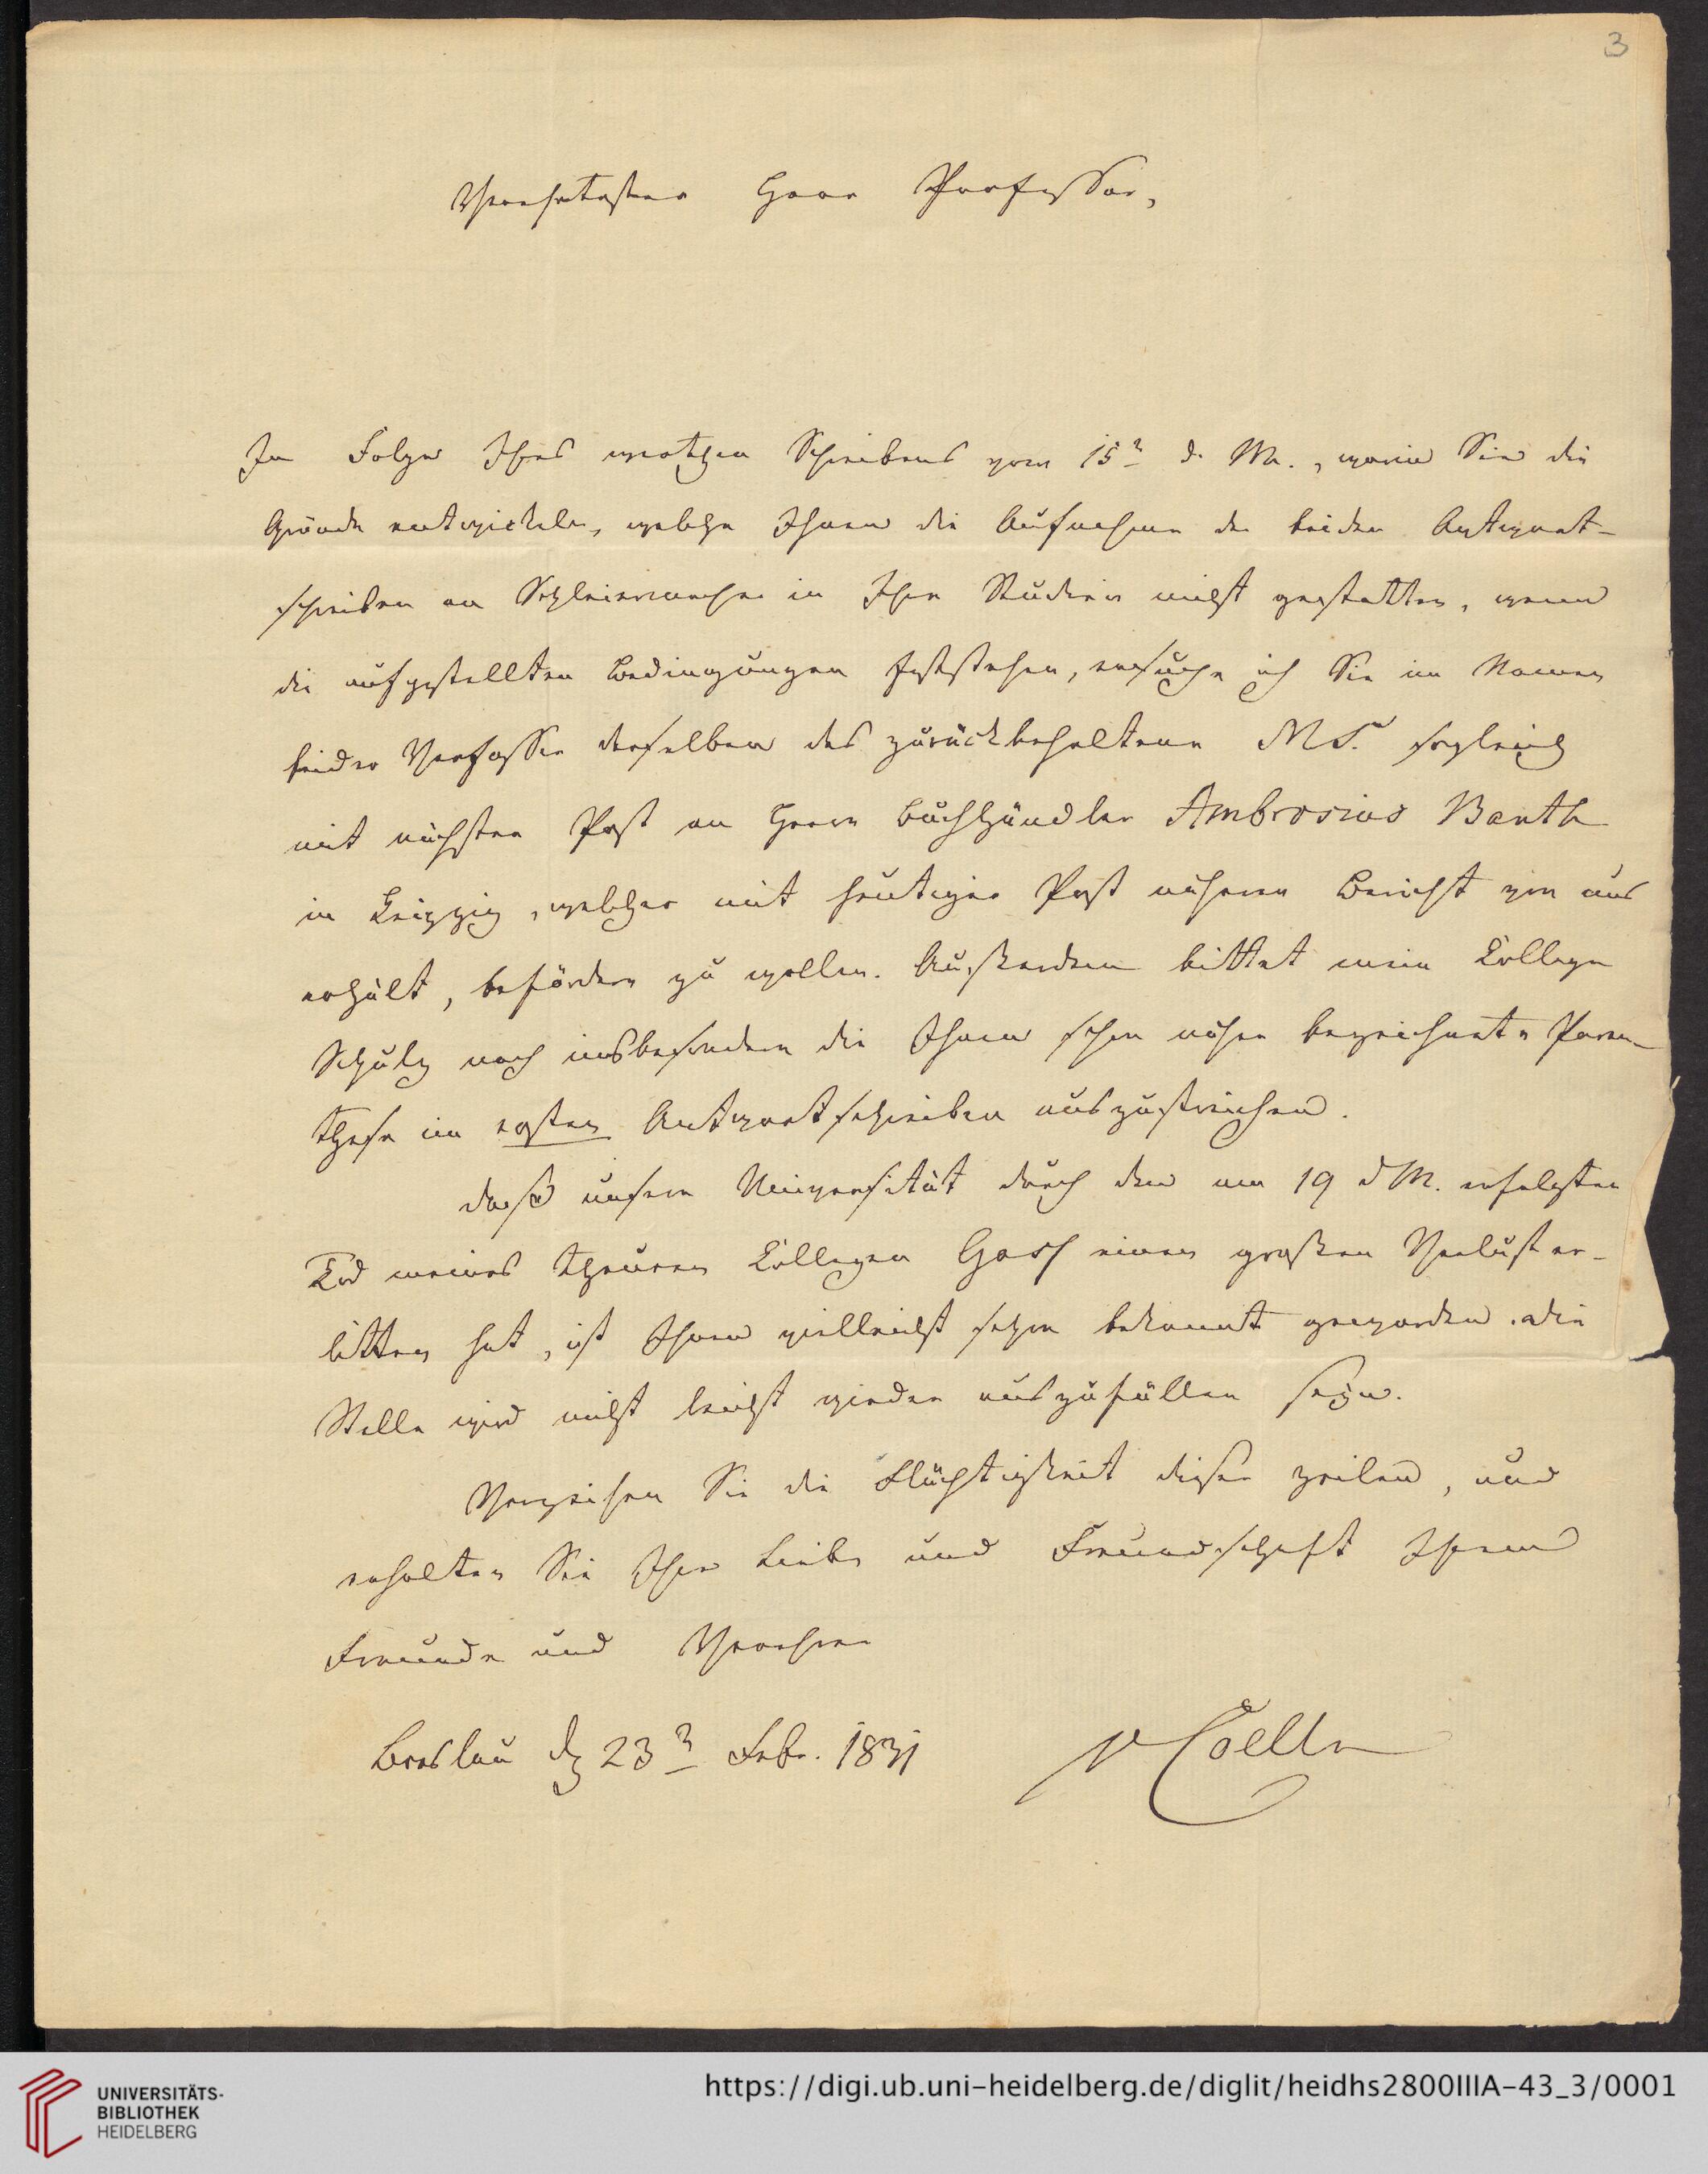 3
Verehrtester Herr Professor,
In Folge Ihres werthen Schreibens vom 15n d. M., worin Sie die
Gründe entwickeln, welche Ihnen die Aufnahme der beiden Antwort-
schreiben an Schleiermacher in Ihre Studien nicht gestatten, wenn
die aufgestellten Bedingungen feststehen, ersuche ich Sie im Namen
beider Verfasser derselben das zurückbehaltene MS. sogleich
mit nächster Post an Herrn Buchhändler Ambrosius Barth
in Leipzig, welcher mit heutiger Post näheren Bericht von uns
erhält, befördern zu wollen. Außerdem bittet mein College
Schulz noch insbesondere die Ihnen schon näher bezeichnete Paren-
these im ersten Antwortschreiben auszustreichen.
Daß unsere Universität durch den am 19 d M. erfolgten
Tod meines theuren Collegen Gass einen großen Verlust er-
litten hat, ist Ihnen vielleicht schon bekannt geworden. Die
Stelle wird nicht leicht wieder auszufüllen seyn.
Verzeihen Sie die Flüchtigkeit dieser Zeilen, und
erhalten Sie Ihre Liebe und Freundschaft Ihrem
Freunde und Verehrer
Breslau d 23n Febr. 1831
v Coelln
UNIVERSITÄTS-
BIBLIOTHEK
HEIDELBERG
https://digi.ub.uni-heidelberg.de/diglit/heidhs2800IIIA-43_3/0001